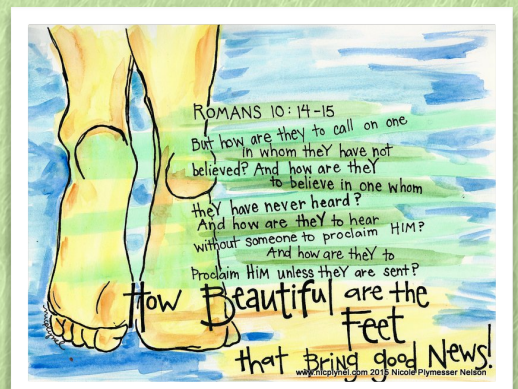 ROMANS 10:14-15
But how are they to call on one
in whom theY have not
believed? And how are theY
to believe in one whom
theY have never heard?
And how are theY to hear
without someone to proclaim HIM?
And how are theY to
Proclaim HIM unless theY are sent?
How Beautiful are the
Feet
that Bring good News!
www.nicplynel.com 2015 Nicole Plymesser Nelson